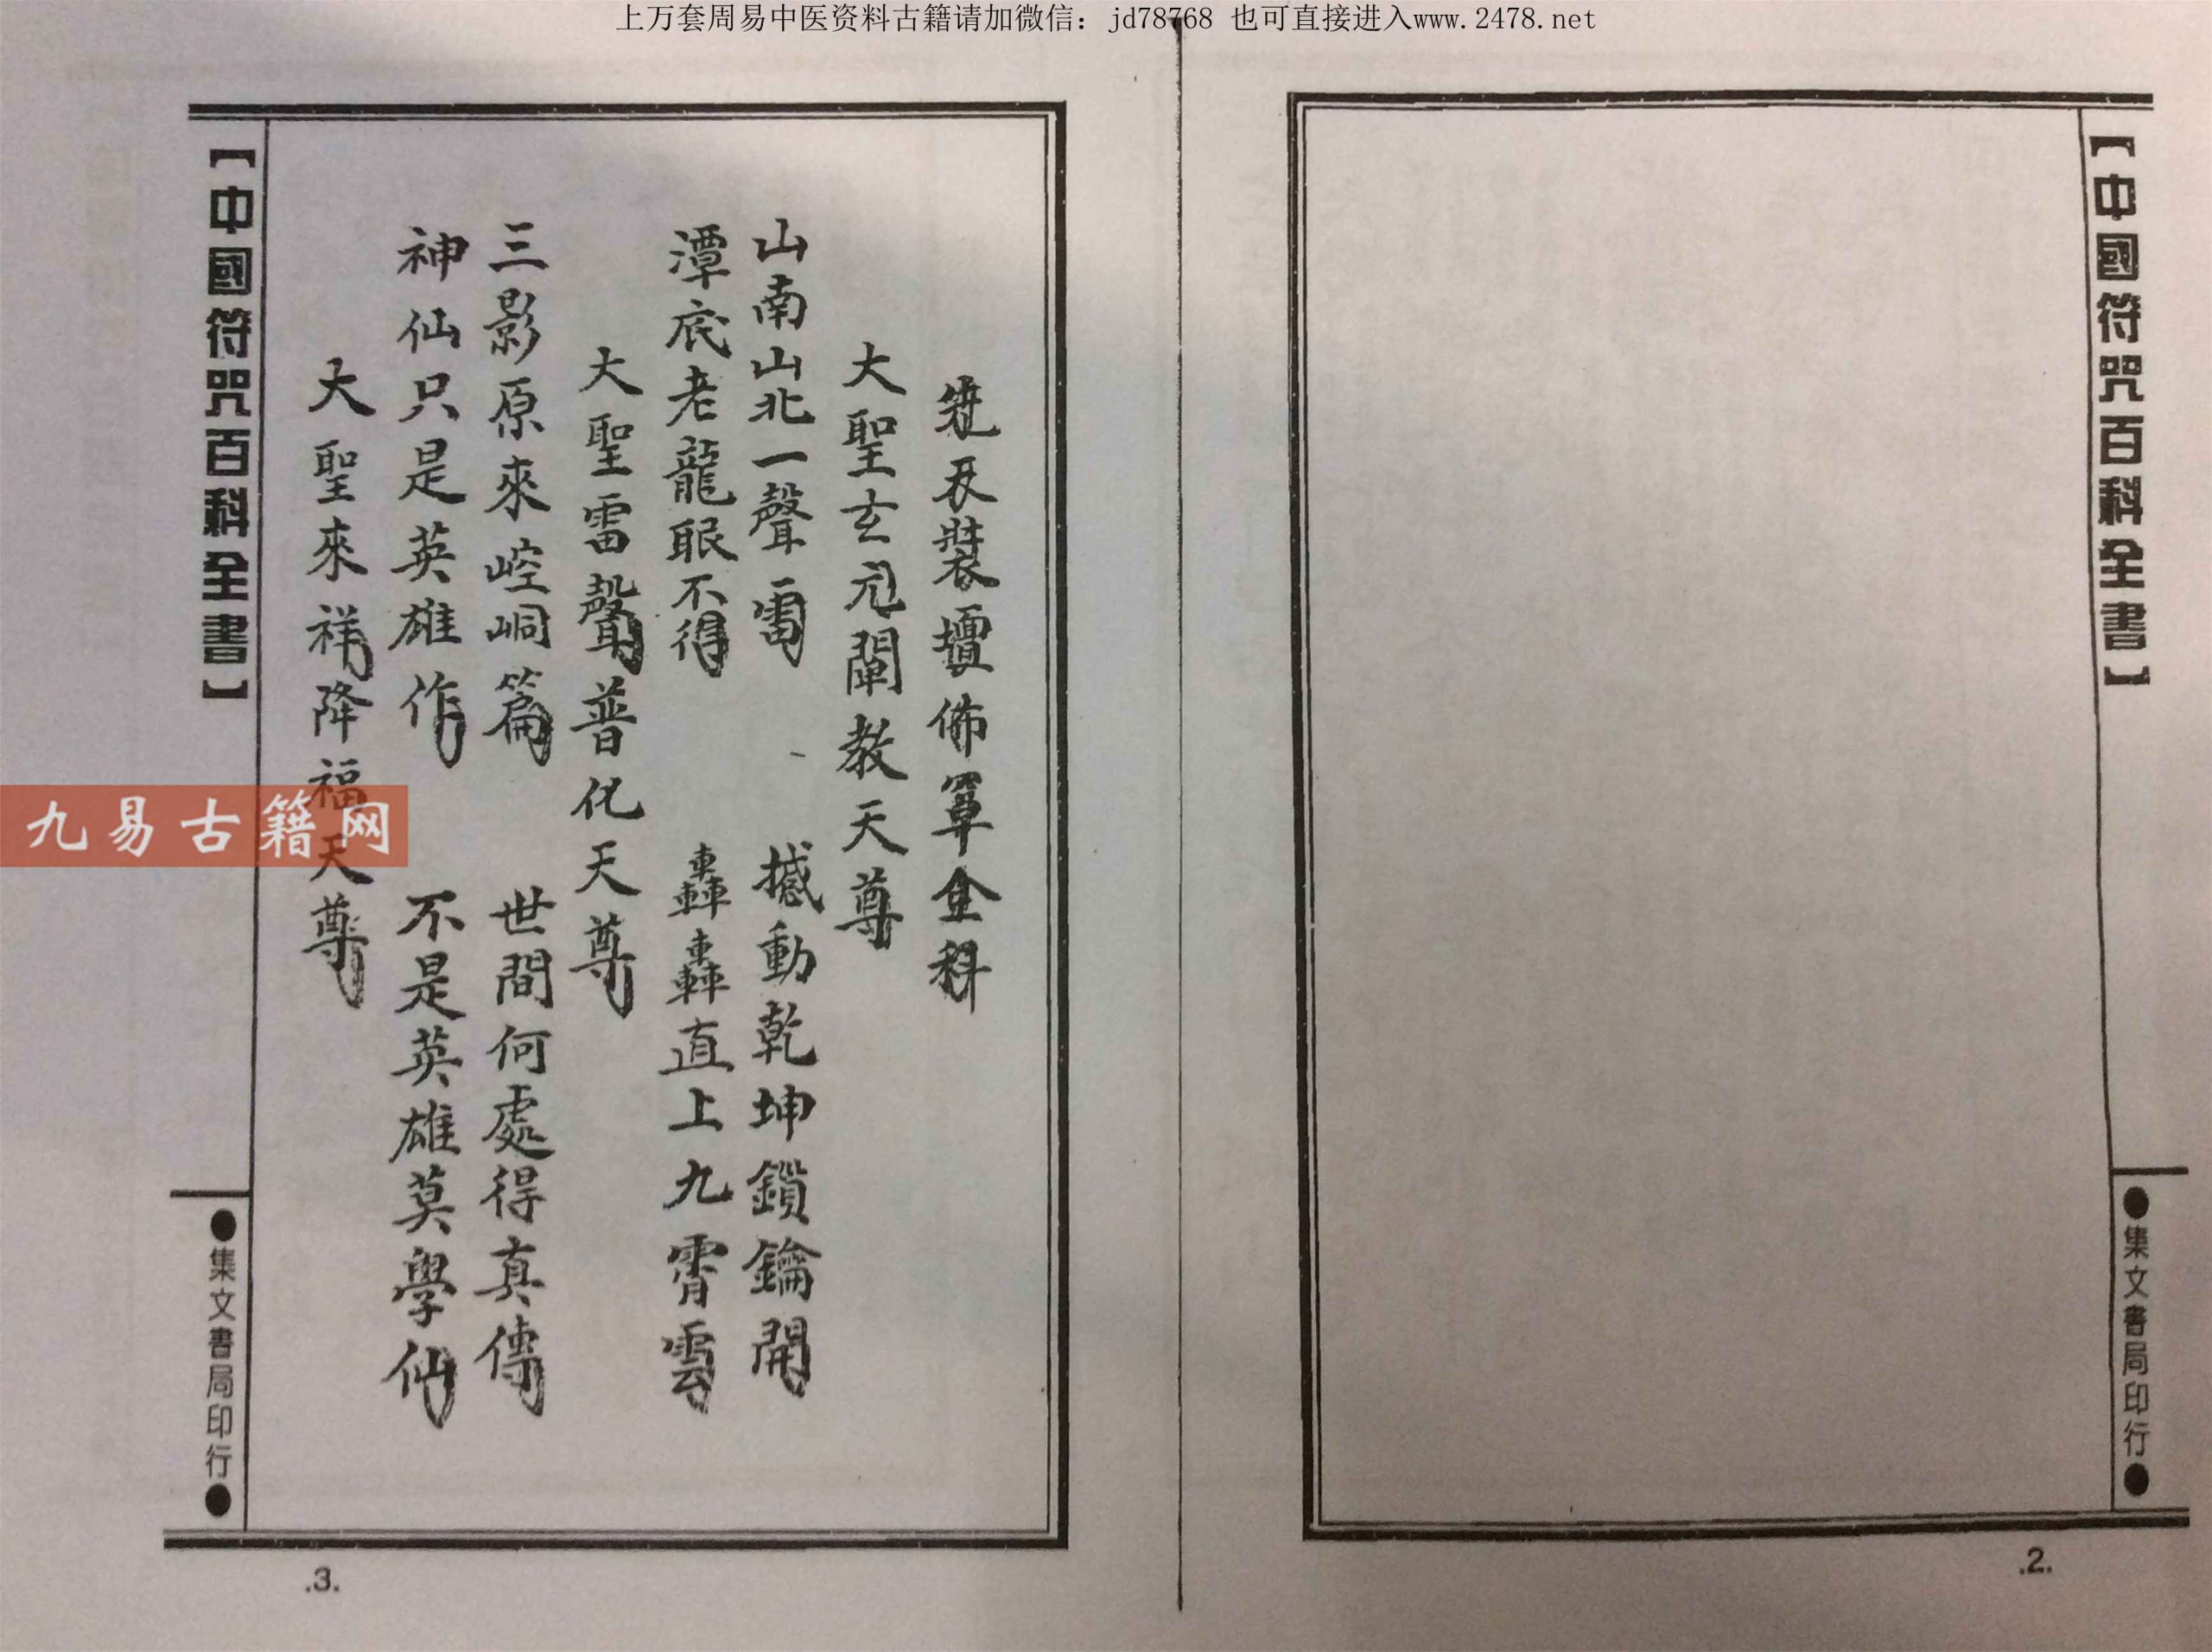 上万套周易中医资料古籍请加微信：jd78768 也可直接进入www.2478.net
【中國符咒百科全書】
●集文書局印行●
.2.
裝壇佈罩金科
大聖玄元闡教天尊
山南山北一聲雷 撼動乾坤鎖鑰開
潭底老龍眠不得 轟轟直上九霄雲
大聖雷聲普化天尊
三影原來崆峒篇 世間何處得真傳
神仙只是英雄作 不是英雄莫學仙
大聖來祥降福天尊
【中國符咒百科全書】
●集文書局印行●
.3.
九易古籍网